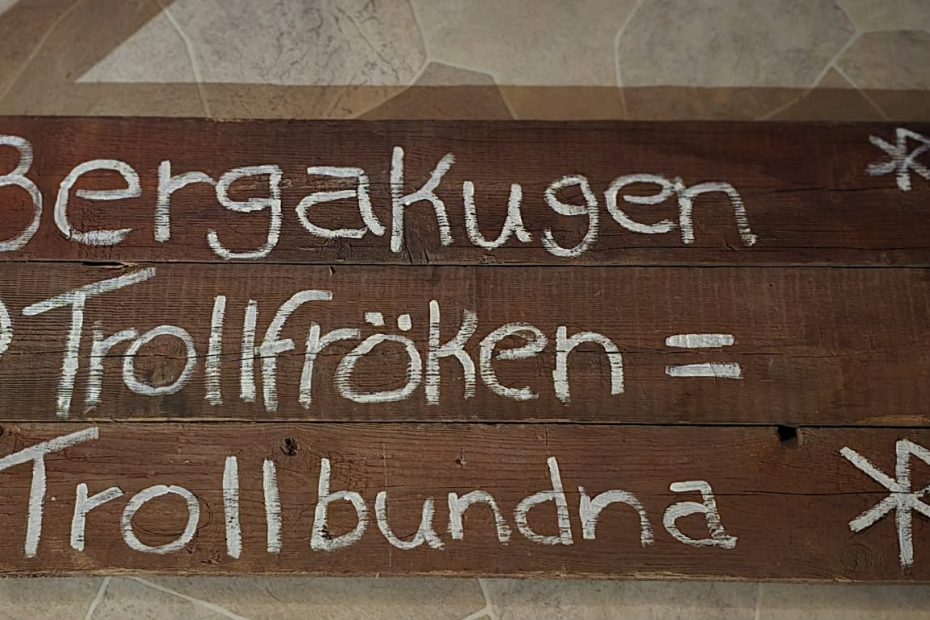 Bergakugen *
Trollfröken =
Trollbundna *